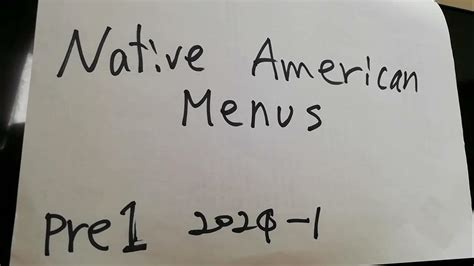 Native American
Menus
Pre1 2024-1